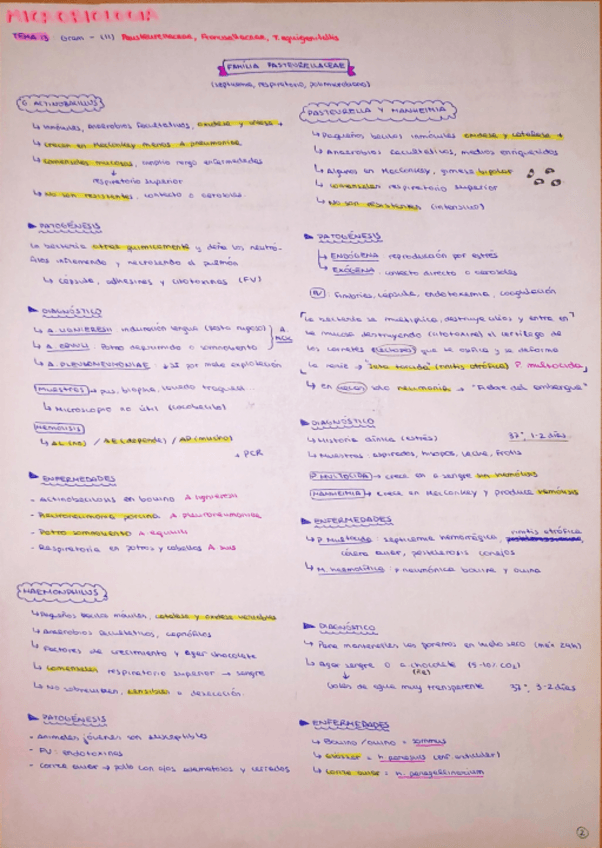 MICROBIOLOGIA
TEMA 13 Gram - (II) Pasteurellaceae, Francisellaceae, T. equigenitalis
FAMILIA PASTEURELLACEAE
(septicemia, respiratorio,
G. ACTINOBACILLUS
↳ Inmóviles, anaerobios facultativos, oxidasa y ureasa +
↳ crecen en MacConkey menos A pneumoniae
↳ comensales mucosas, amplio rango enfermedades
↓
respiratorio superior
↳ No son resistentes, contacto o aerosoles.
► PATOGÉNESIS
La bacteria atrae químicamente y daña los neutró-
filos inflamando y necrosando el pulmón
↳ cápsula, adhesinas y citotoxinas (FV)
► DIAGNÓSTICO
↳ A. LIGNIERESII induración lengua
↳ A. EQUULI: Potro deprimido o somnoliento
↳ A. PLEUROPNEUMONIAE: por mala explotación
MUESTRAS → pus, biopsia, lavado traqueal...
↳ Microscopio no útil (cocobacilo)
HEMÓLISIS
↳ AL (no) / AE (depende) / AP (mucho)
+ PCR
► ENFERMEDADES
- Actinobacilosis en bovino A lignieresii
- Pleuroneumonía porcina A pleuroneumoniae
- Potro somnoliento A equuli
- Respiratoria en potros y caballos A suis
HAEMOPHILUS
↳ Pequeños bacilos móviles, catalasa y oxidasa variables
↳ Anaerobios facultativos, capnófilos
↳ Factores de crecimiento y Agar chocolate
↳ comensales respiratorio superior → sangre
↳ No sobreviven, sensibles a desecación.
► PATOGÉNESIS
- Animales jóvenes son susceptibles
- FV: endotoxinas
- coriza aviar → pollo con ojos edematosos y cerrados
PASTEURELLA Y MANHEIMIA
↳ Pequeños bacilos inmóviles oxidasa y catalasa +
↳ Anaerobios facultativos, medios enriquecidos
↳ Algunos en MacConkey, giemsa bipolar
↳ comensales respiratorio superior
↳ No son resistentes (intensivo)
► PATOGÉNESIS
↳ ENDÓGENA reproducción por estrés
↳ EXÓGENA: contacto directo o aerosoles
FV: Fimbrias, cápsula, endotoxemia, coagulación
La bacteria se multiplica, destruye cilios y entra en
la mucosa destruyendo (citotoxina) el cartílago de
los cornetes que se osifica y se deforma
la nariz → (rinitis atrófica) P. multocida
↳ en vacas solo neumonía → "Fiebre del embarque"
► DIAGNÓSTICO
↳ Historia clínica (estrés) 37° 1-2 días
↳ Muestras: aspirados, hisopos, leche, frotis
P MULTOCIDA → crece en a sangre sin hemólisis
MANHEIMIA → crece en MacConkey y produce hemólisis
► ENFERMEDADES
↳ P Multocida: septicemia hemorrágica, rinitis atrófica
cólera aviar, conejos
↳ M. haemolitica: P neumónica bovina y ovina
► DIAGNÓSTICO
↳ Para mantenerlas las ponemos en hielo seco (máx 24h)
↳ Agar sangre o a chocolate (5-10% CO2)
↓
Gotas de agua muy transparente 37° 3-2 días
► ENFERMEDADES
↳ Bovino / ovino = somnus
↳ Glasser = h. parasuis (enf. articular)
↳ Coriza aviar = h. paragallinarum
2